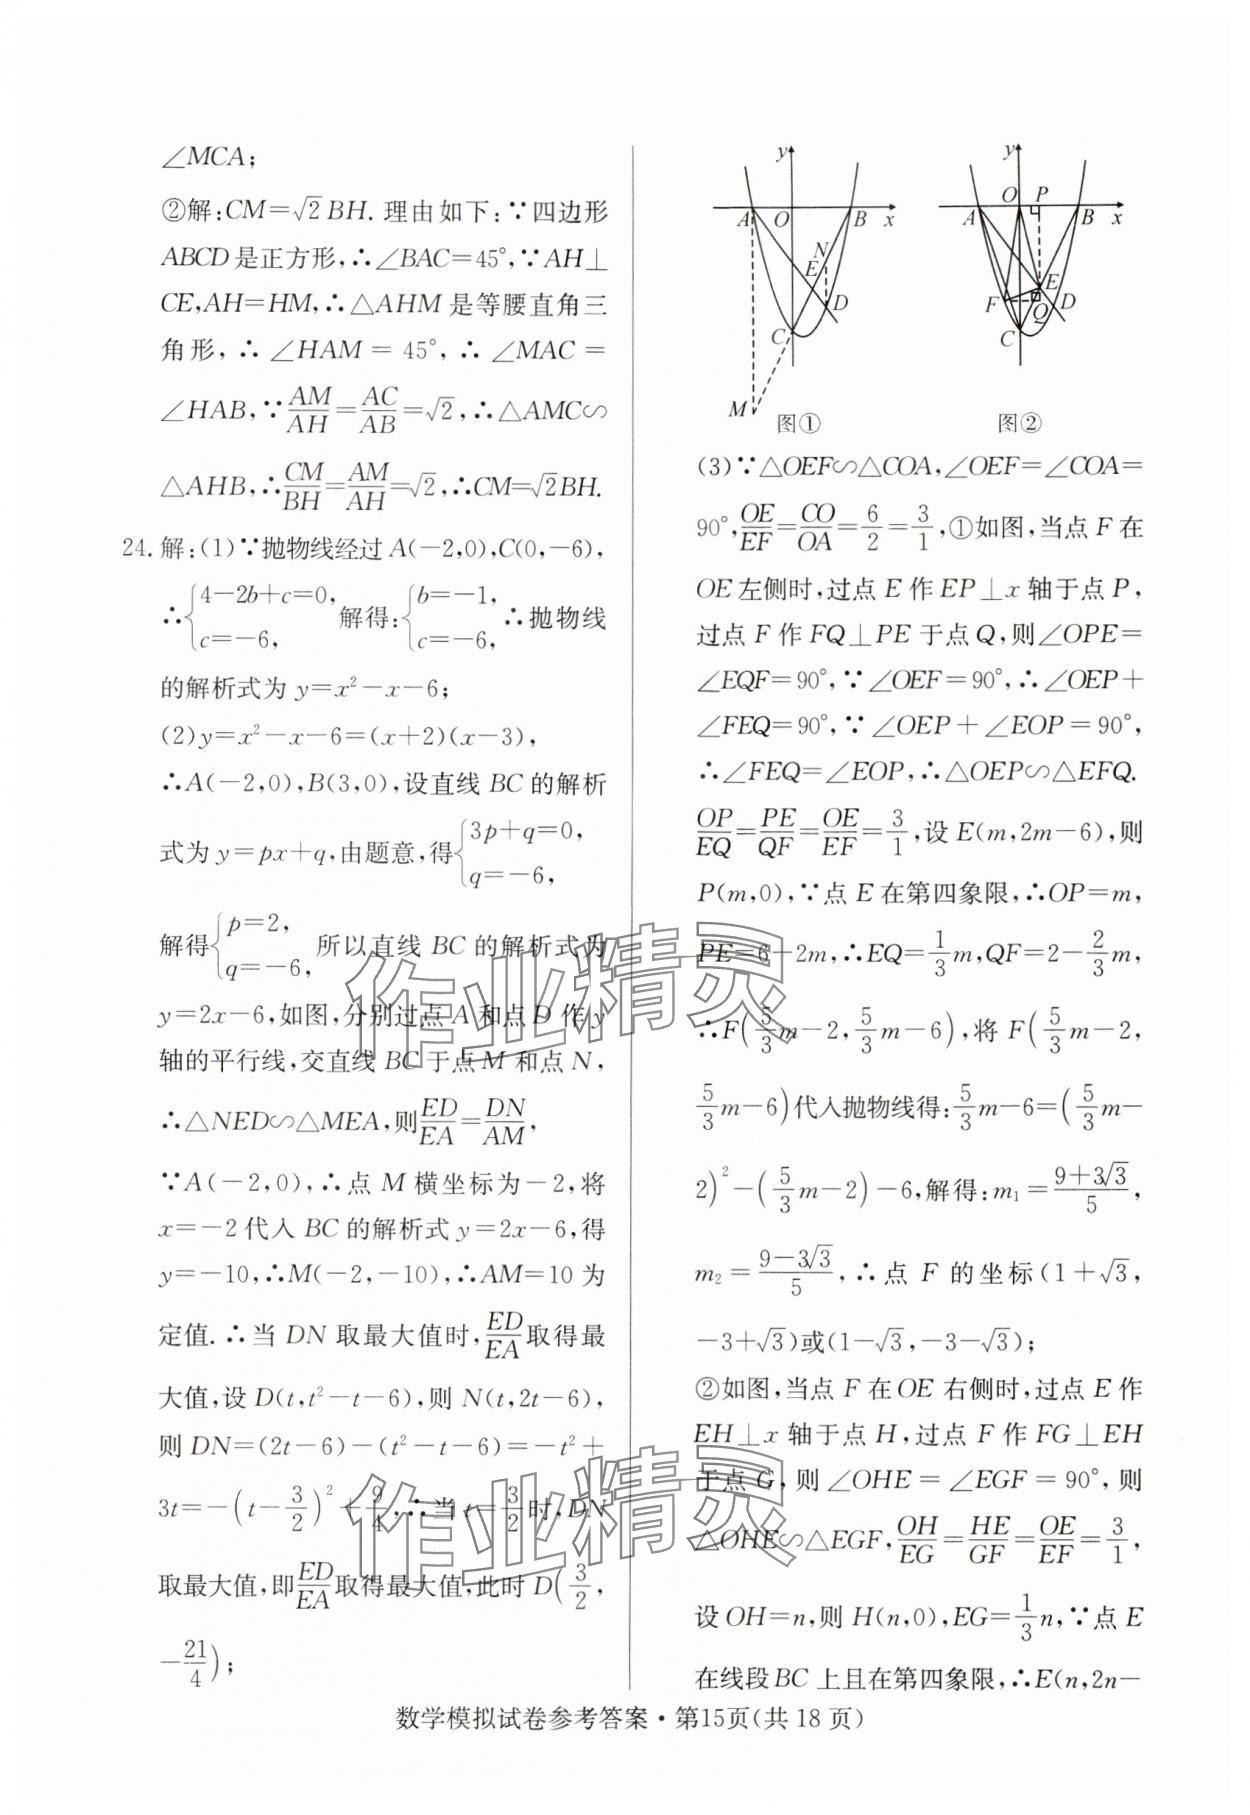 ∠MCA;
②解:CM=√2BH.理由如下:∵四边形
ABCD是正方形,∴∠BAC=45°,∵AH⊥
CE,AH=HM,∴△AHM是等腰直角三
角形,∴∠HAM=45°,∴∠MAC=
∠HAB,∵AM/AH=AC/AB=√2,∴△AMC∽
△AHB,∴CM/BH=AM/AH=√2,∴CM=√2BH.
24.解:(1)∵抛物线经过A(-2,0),C(0,-6),
∴{4-2b+c=0, c=-6, 解得:{b=-1, c=-6, ∴抛物线
的解析式为y=x²-x-6;
(2)y=x²-x-6=(x+2)(x-3),
∴A(-2,0),B(3,0),设直线BC的解析
式为y=px+q,由题意,得{3p+q=0, q=-6,
解得{p=2, q=-6, 所以直线BC的解析式为
y=2x-6,如图,分别过点A和点D作y
轴的平行线,交直线BC于点M和点N,
∴△NED∽△MEA,则ED/EA=DN/AM,
∵A(-2,0),∴点M横坐标为-2,将
x=-2代入BC的解析式y=2x-6,得
y=-10,∴M(-2,-10),∴AM=10为
定值.∴当DN取最大值时,ED/EA取得最
大值,设D(t,t²-t-6),则N(t,2t-6),
则DN=(2t-6)-(t²-t-6)=-t²+
3t=-(t-3/2)²+9/4,∴当t=3/2时,DN
取最大值,即ED/EA取得最大值,此时D(3/2,
-21/4);
y
A
O
B
x
N
E
D
C
M
图①
y
O
P
A
B
x
E
F
Q
D
C
图②
(3)∵△OEF∽△COA,∠OEF=∠COA=
90°,OE/EF=CO/OA=6/2=3/1,①如图,当点F在
OE左侧时,过点E作EP⊥x轴于点P,
过点F作FQ⊥PE于点Q,则∠OPE=
∠EQF=90°,∵∠OEF=90°,∴∠OEP+
∠FEQ=90°,∵∠OEP+∠EOP=90°,
∴∠FEQ=∠EOP,∴△OEP∽△EFQ.
OP/EQ=PE/QF=OE/EF=3/1,设E(m,2m-6),则
P(m,0),∵点E在第四象限,∴OP=m,
PE=6-2m,∴EQ=1/3m,QF=2-2/3m,
∴F(5/3m-2,5/3m-6),将F(5/3m-2,
5/3m-6)代入抛物线得:5/3m-6=(5/3m-
2)²-(5/3m-2)-6,解得:m₁=(9+3√3)/5,
m₂=(9-3√3)/5,∴点F的坐标(1+√3,
-3+√3)或(1-√3,-3-√3);
②如图,当点F在OE右侧时,过点E作
EH⊥x轴于点H,过点F作FG⊥EH
于点G,则∠OHE=∠EGF=90°,则
△OHE∽△EGF,OH/EG=HE/GF=OE/EF=3/1,
设OH=n,则H(n,0),EG=1/3n,∵点E
在线段BC上且在第四象限,∴E(n,2n-
作业精灵
作业精灵
数学模拟试卷参考答案·第15页(共18页)